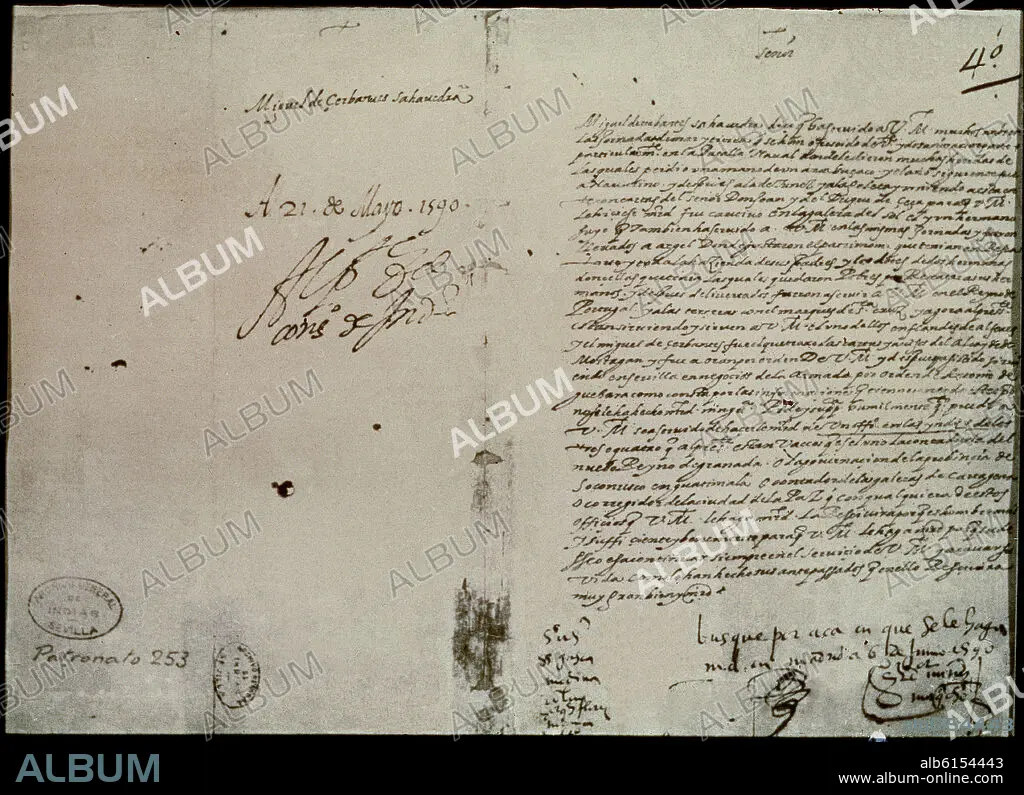 Miguel de Çerbantes Sahavedra
A 21. de Mayo. 1590.
Al Pte del
consº de Indªs
ARCHIVO GENERAL
DE
INDIAS
SEVILLA
Patronato 253
Señor
4º
Miguel de cerbantes sahavedra dice q ha servido a V. M. muchos años en
las jornadas de mar y tierra q se han ofrescido de
particularmte en la Batalla Naval donde le dieron muchas heridas de
las quales perdio una mano de un arcabuçaço y el año siguiente fue
a Navarino y despues a la de Tunez y a la goleta y viniendo a esta corte
con cartas del señor Don Joan y del Duque de Çeça para q V. M.
le hiciese md fue cautivo en la galera del sol el y un hermano
suyo q tambien ha servido a V. M. en las mismas jornadas y fueron
llevados a argel donde gastaron el patrimonio que tenian en Resca
tarse y toda la hazienda de sus padres y los dotes de dos hermanas
doncellas que tenia las quales quedaron Pobres por Rescatar a sus her
manos y despues de livertados fueron a servir a V. M. en el Reyno de
Portugal y a las terceras con el marques de Sta cruz y agora al presente
estan sirviendo y sirven a V. M. el uno dellos en flandes de alferez
y el miguel de Çerbantes fue el que traxo las cartas y avisos del Alcayde de
Mostagan y fue a oran por orden De V. M. y despues a asistido sirvi
endo en sevilla en negocios de la Armada por orden de
guebara como consta por las informaciones q tiene y en todo este tpo
no se le ha hecho md ninga Pide y supca humilmente quanto puede a
V. M. sea servido de hacerle md de un offº en las yndias de los
tres o quatro q al presente estan vaccos q es el uno la contaduria del
nuebo Reyno de granada. O la governacion de la provincia de
Soconusco en guatimala O contador de las galeras de Cartagena
O corregidor de la ciudad de la Paz q con qualquiera de estos
officios q V. M. le haga md. La Resçivira porque es hombre avil
y sufficiente y benemerito para q V. M. le haga md porque su
deseo es a continuar siempre en el servicio de V. M. y acavar su
vida como lo han hecho sus antepasados q en ello Resçivira
muy gran bien y md
busque por aca en que se le haga
md. en madrid a 6 de Junio 1590
medina
ALBUM
alb6154443
www.album-online.com